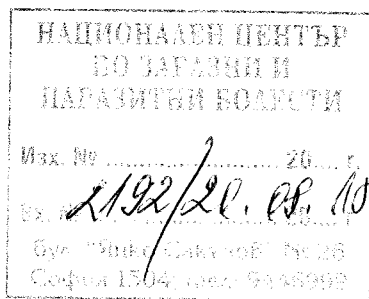 НАЦИОНАЛЕН ЦЕНТЪР
ПО ЗАРАЗНИ И
ПАРАЗИТНИ БОЛЕСТИ
Изх. № ........................ 20..... г.
Вх. № 2192/20.08.10
бул. "Янко Сакъзов" № 26
София 1504, тел. 9446999